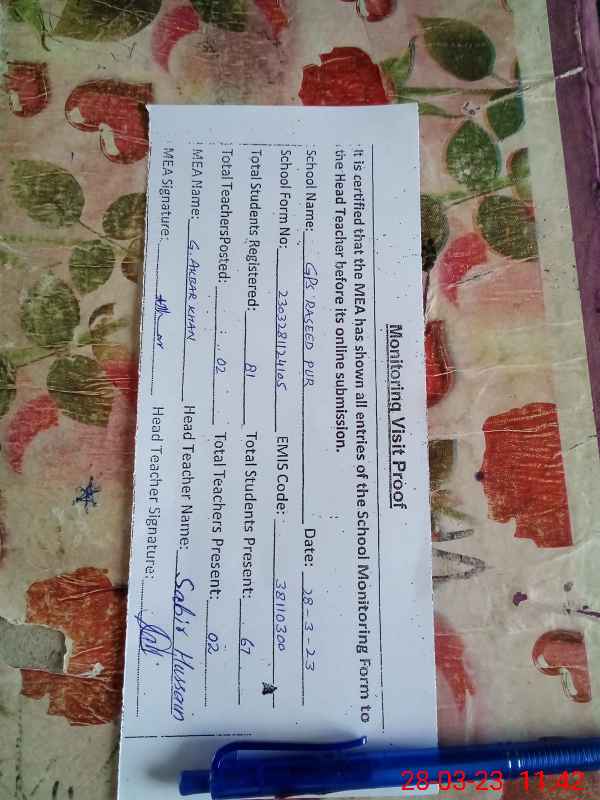 Monitoring Visit Proof
It is certified that the MEA has shown all entries of the School Monitoring Form to
the Head Teacher before its online submission.
School Name: GPS RASEED PUR Date: 28-3-23
School Form No: 2303281124105 EMIS Code: 38110300
Total Students Registered: 81 Total Students Present: 67
Total TeachersPosted: 02 Total Teachers Present: 02
MEA Name: G. AKBAR KHAN Head Teacher Name: Sabir Hussain
MEA Signature: Head Teacher Signature:
28-03-23 11:42